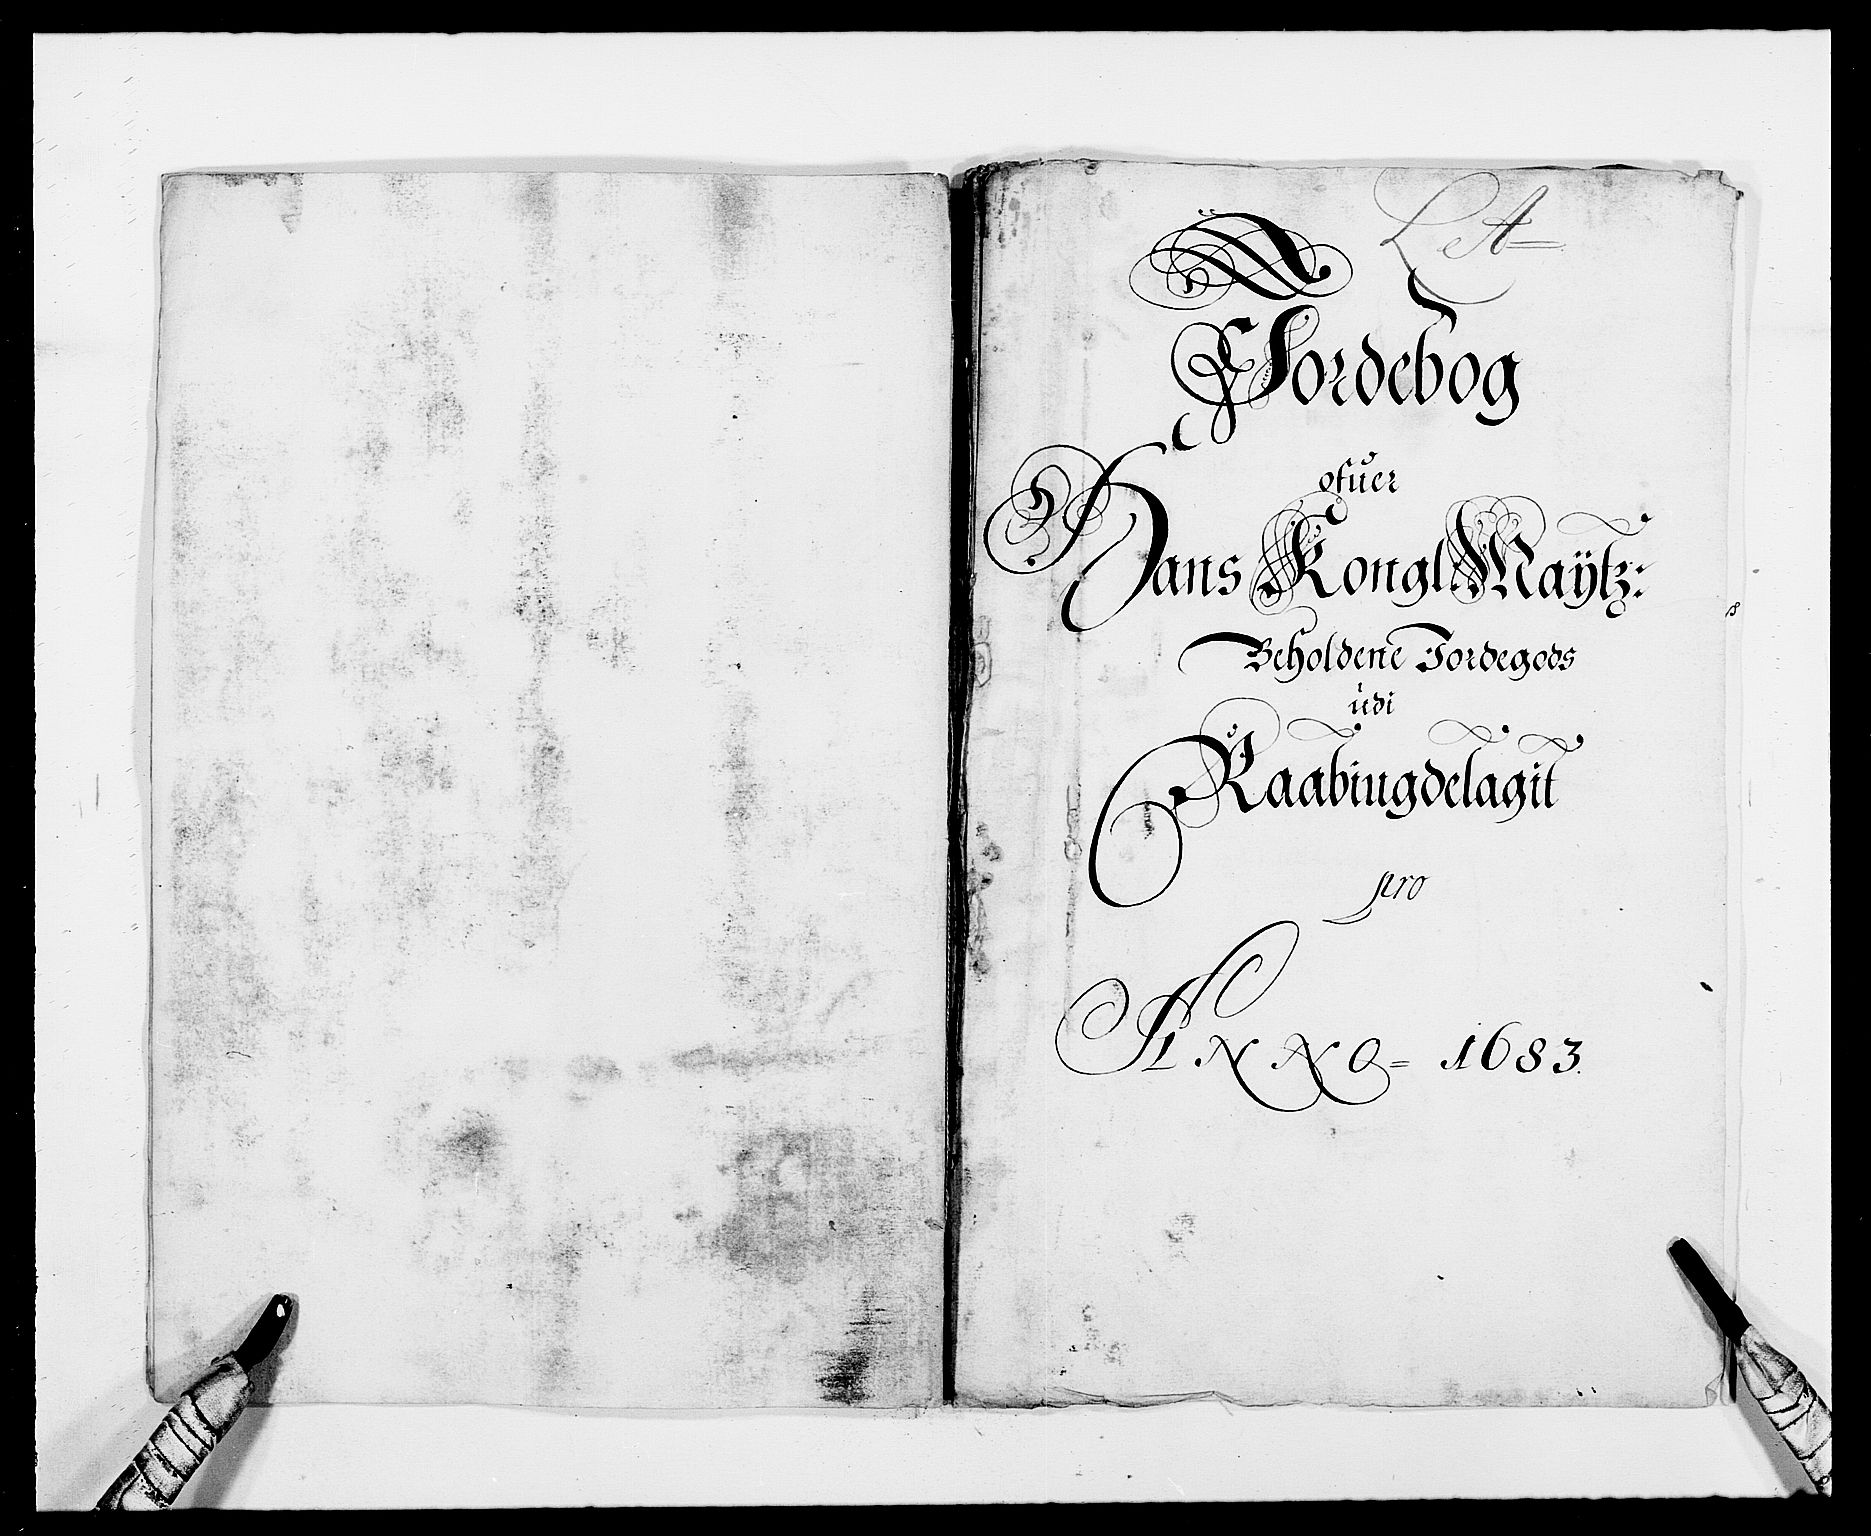 Lit A
Jordebog
ofuer
Hans Kongl Maÿtz:
Beholdene Jordegods
udi
Raabiugdelagit
pro
ANNO = 1683.